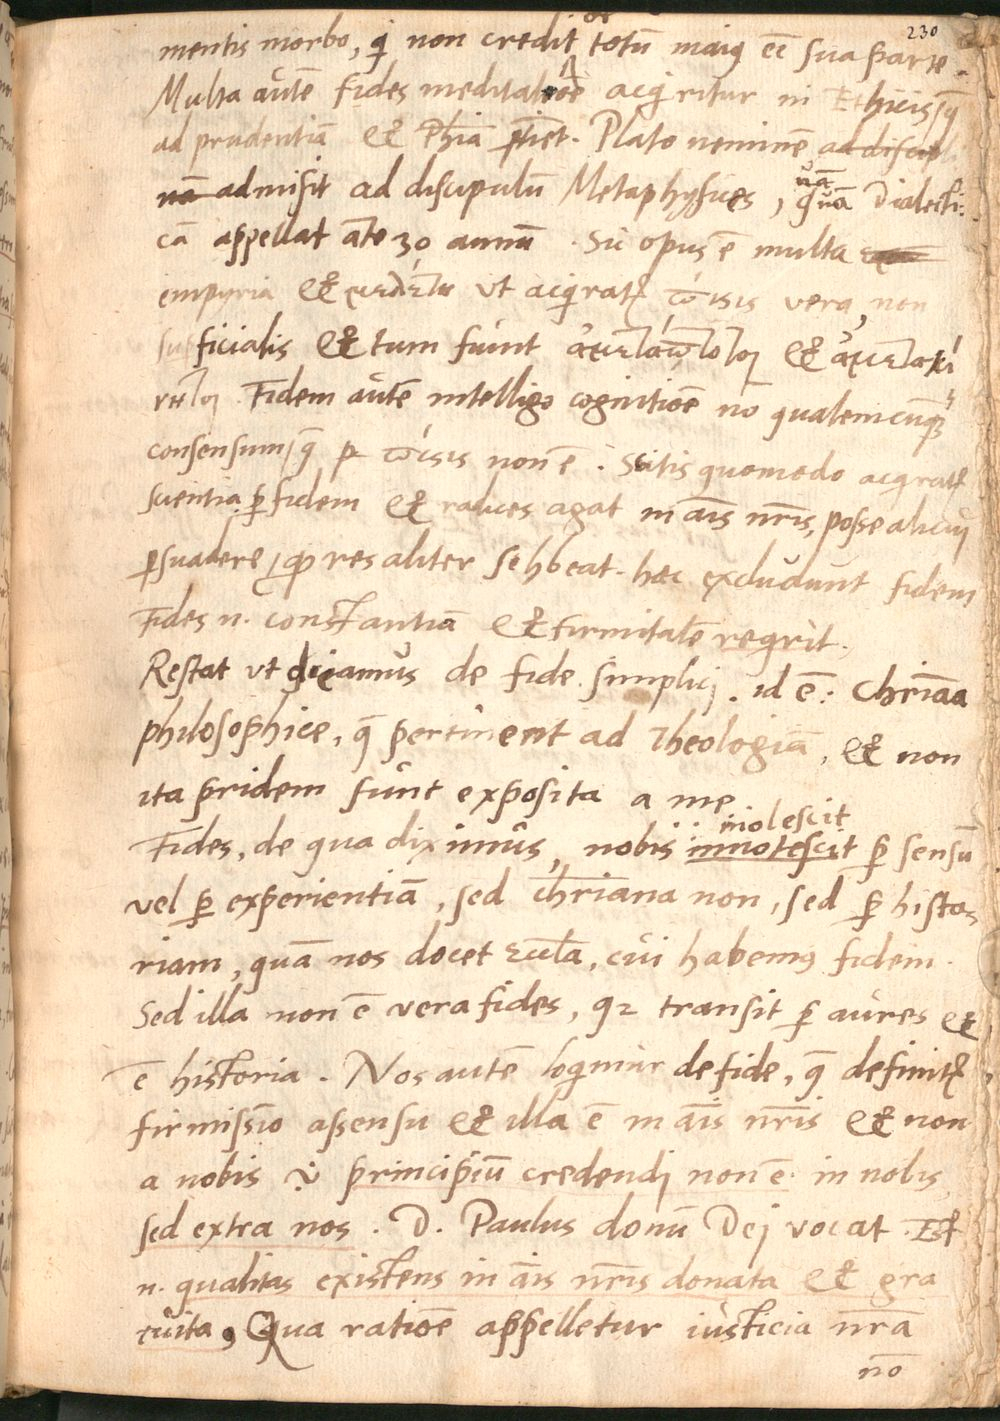 230
mentis morbo, qi non credit totū maiꝯ eē sua parte.
Multa autē fides meditatiōe acqiritur in Ethicis, q̄
ad prudentiā & Phiā ꝑtiēt. Plato neminē ad discipli
nā admisit ad discipulū Metaphysices, quā Dialecti-
cā appellat ante 30 annū. Sic opus ē multa
empyria & ut acqirat͛ πίσις vera, non
suꝑficialis & tum fiunt &
Fidem autē intelligo cognitiōe nō qualemcūq̄
consensum, q̄ ꝑ πίσις non ē. Scitis quomodo acqirat͛
scientia ꝑ fidem & radices agat in aīs nr̄is, posse alicui
ꝑsuadere, ꝙ res aliter se hbeat. hæc excludunt fidem
Fides n. constantiā & firmitatē reqrit.
Restat ut dicamus de fide simplicj. id ē: Chriāa
philosophice, q̄ pertinent ad Theologiā, & non
ita pridem sunt exposita a me
inolescit
Fides, de qua diximus, nobis innotescit ꝑ sensū
vel ꝑ experientiā, sed Chr̄iana non, sed ꝑ histo-
riam, quā nos docet eccl̄a, cui habemꝯ fidem.
Sed illa non ē vera fides, q2 transit ꝑ aures &
ē historia. Nos autē loqimur de fide, q̄ definit͛
firmissīo assensu & illa ē in aīs nr̄is & non
a nobis principiū credendj non ē in nobis
sed extra nos. D. Paulus donū Dej vocat. Est
n. qualitas existens in aīs nr̄is donata & gra
tuita, Qua ratiōe appelletur iusticia nr̄a
nō